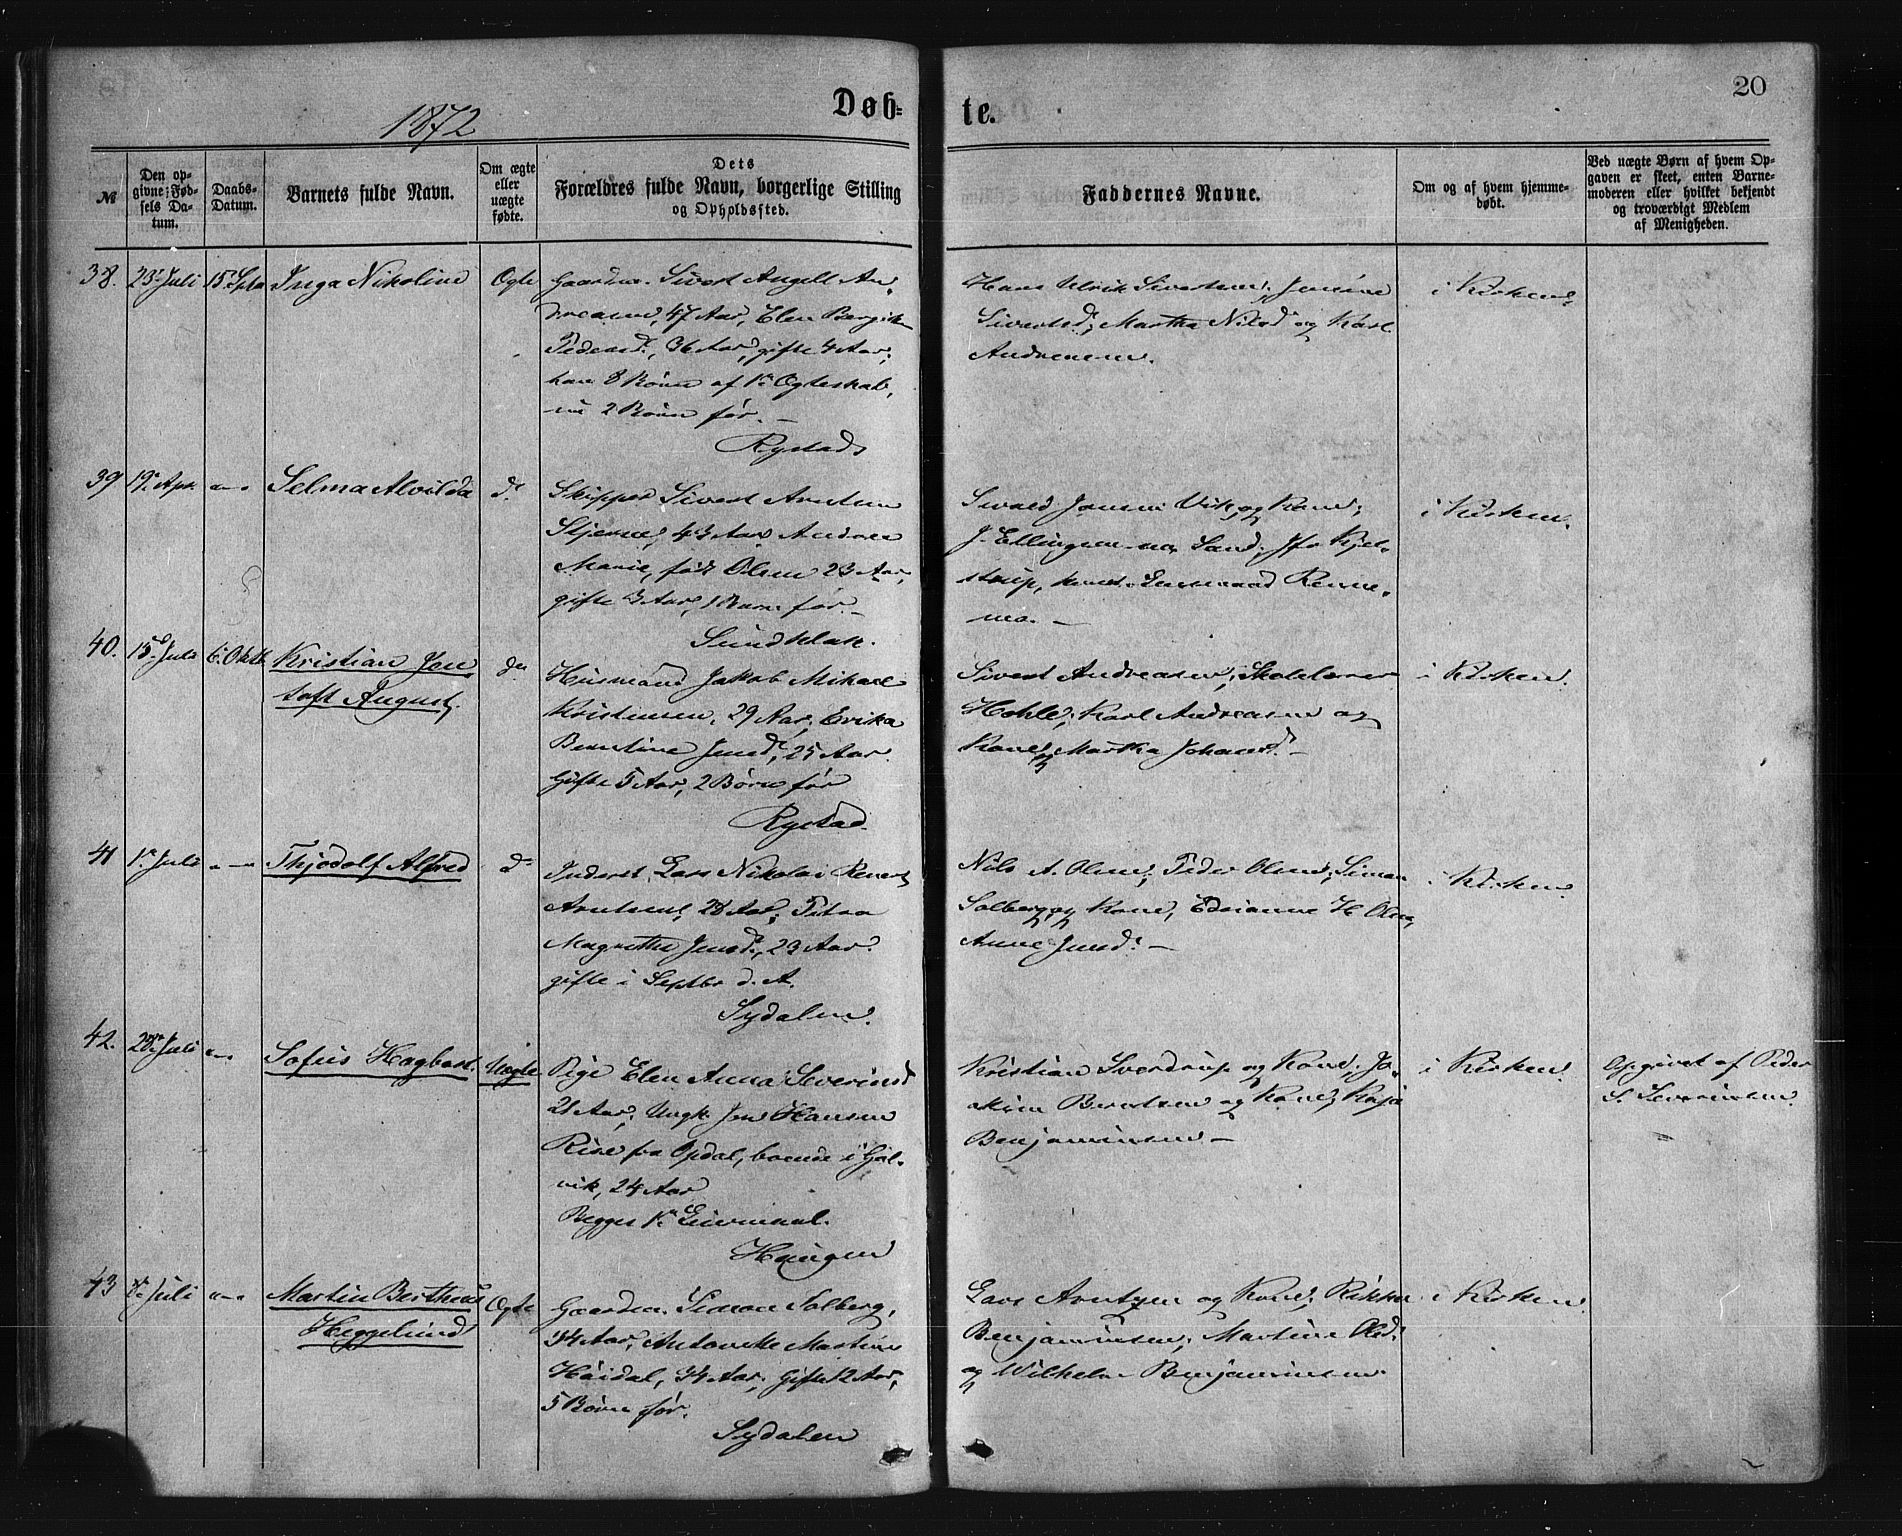 20
1872
Døb=
te.
№
Den op=
givne Fød=
sels Da=
tum.
Daabs=
Datum.
Barnets fulde Navn.
Om ægte
eller
uægte
fødte.
Dets
Forældres fulde Navn, borgerlige Stilling
og Opholdssted.
Faddernes Navne.
Om og af hvem hjemme=
døbt.
Ved uægte Børn af hvem Op=
gaven er skeet, enten Barne=
moderen eller hvilket bekjendt
og troværdigt Medlem
af Menigheden.
38. 23 Juli 15 Inga Nikoline Ægte
Gaardm. Sivert Angell An
dreasen, 47 Aar, Elen
Pedersd., 36 Aar, gifte 4 Aar,
han 8 Børn af 1ste Ægteskab,
nu 2 Børn før.
Rystad
Hans Ulrik Sivertsen, Jensine
Sivertsd, Martha Nilsd og Karl
Andreassen.
i Kirken
39 19 Apr. Selma Alvilda do
Skipper Sivert Arntsen
43 Aar Andrea
Marie, født Olsen 23 Aar,
gifte 3 Aar, 1 Barn før.
Sundklak.
Sivald Jansen Vik og Kone;
J. Ellingsen Sand; Kjel-
strup,
i Kirken.
40. 15 Juli 6 Oktb. Kristian Jen
toft August. do
Husmand Jakob Mikael
Kristensen, 29 Aar, Erika
Berntine Jensd, 25 Aar
Gifte 5 Aar, 2 Børn før
Rystad.
Sivert Andreassen, Skolelærer
Hohle, Karl Andreassen og
Kone, Martha Johansd.
i Kirken.
41 1 Juli Thjodolf Alfred do
Inderst Lars Nikolai
Arntsen, 28 Aar, Petra
Magrethe Jensd., 23 Aar.
gifte i Septbr d. A.
Sydalen.
Nils A. Olsen, Peder Olsen, Simon
Solberg og Kone, Edrianne H Olsen,
Anne Jensd.
i Kirken
42. 28 Juli Sofus Hagbart. Uægte
Pige Elen Anna Severinsd
21 Aar, Ungk. Jon Hansen
Rise fra Opdal, boende i Gal-
vik, 24 Aar
Begges 1ste Leiermaal.
Haugen
Kristian Sverdrup og Kone, Jo-
akim Berntsen og Kone, Kaja
Benjaminsen
i Kirken.
Opgivet af Peder
S. Severinsen.
43 Juli Martin Bertheus
Heggelund Ægte
Gaardm. Simon Solberg,
34 Aar, Antonette Martine
Høidal, 34 Aar, Gifte 12 Aar,
5 Børn før.
Sydalen
Lars Arntzen og Kone, Rikka
Benjaminsen, Martine Olsd.
og Wilhelm Benjaminsen
i Kirken.